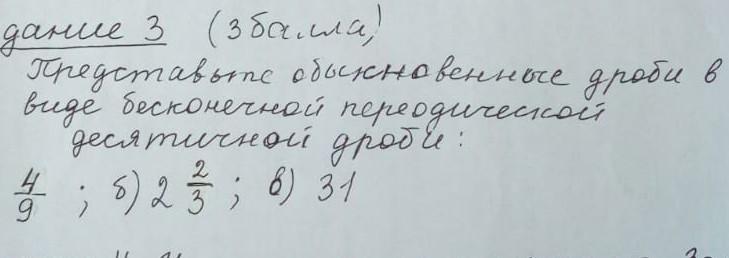 дание 3 (3 балла)
Представьте обыкновенные дроби в
виде бесконечной переодической
десятичной дроби:
4/9 ; б) 2 2/3 ; в) 31